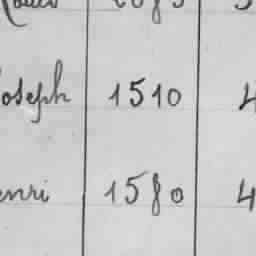 Joseph 1510 4
enri 1580 4